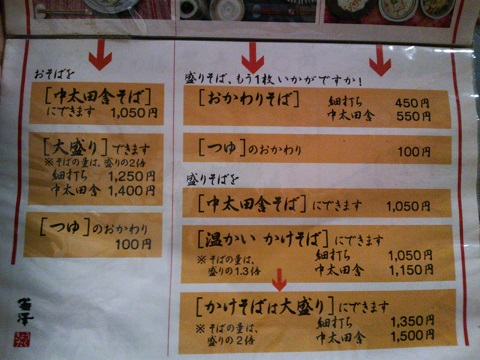 おそばを
[中太田舎そば]
にできます 1,050円
[大盛り]できます
※そばの量は、盛りの2倍
細打ち 1,250円
中太田舎 1,400円
[つゆ]のおかわり
100円
盛りそば、もう1枚いかがですか!
[おかわりそば] 細打ち 450円
中太田舎 550円
[つゆ]のおかわり 100円
盛りそばを
[中太田舎そば]にできます 1,050円
[温かい かけそば]にできます
※そばの量は、 細打ち 1,050円
盛りの1.3倍 中太田舎 1,150円
[かけそばは大盛り]にできます
※そばの量は、 細打ち 1,350円
盛りの2倍 中太田舎 1,500円